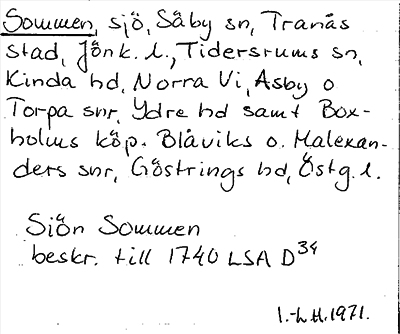 Sommen, sjö, Säby sn, Tranås
stad, Jönk. l., Tidersrums sn,
Kinda hd, Norra Vi, Asby o
Torpa snr, Ydre hd samt Box-
holms köp. Blåviks o. Malexan-
ders snr, Göstrings hd, Östg. l.
Sjön Sommen
beskr. till 1740 LSA D34
I.-L H. 1971.